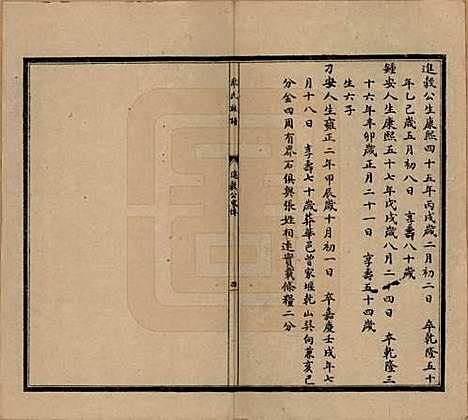 進毅公生康熙四十五年丙戌歲二月初二日　卒乾隆五十
年乙巳歲五月初八日　享壽八十歲
鍾安人生康熙五十七年戊戌歲八月二十四日　卒乾隆三
十六年辛卯歲正月二十一日　享壽五十四歲
生六子
刁安人生雍正二年甲辰歲十月初一日　卒嘉慶壬戌年七
月十八日　享壽七十歲葬華邑曾家堰乾山巽向兼亥巳
分金四周有界石俱與張姓相連實載條糧二分
氏族譜
進毅公家傳